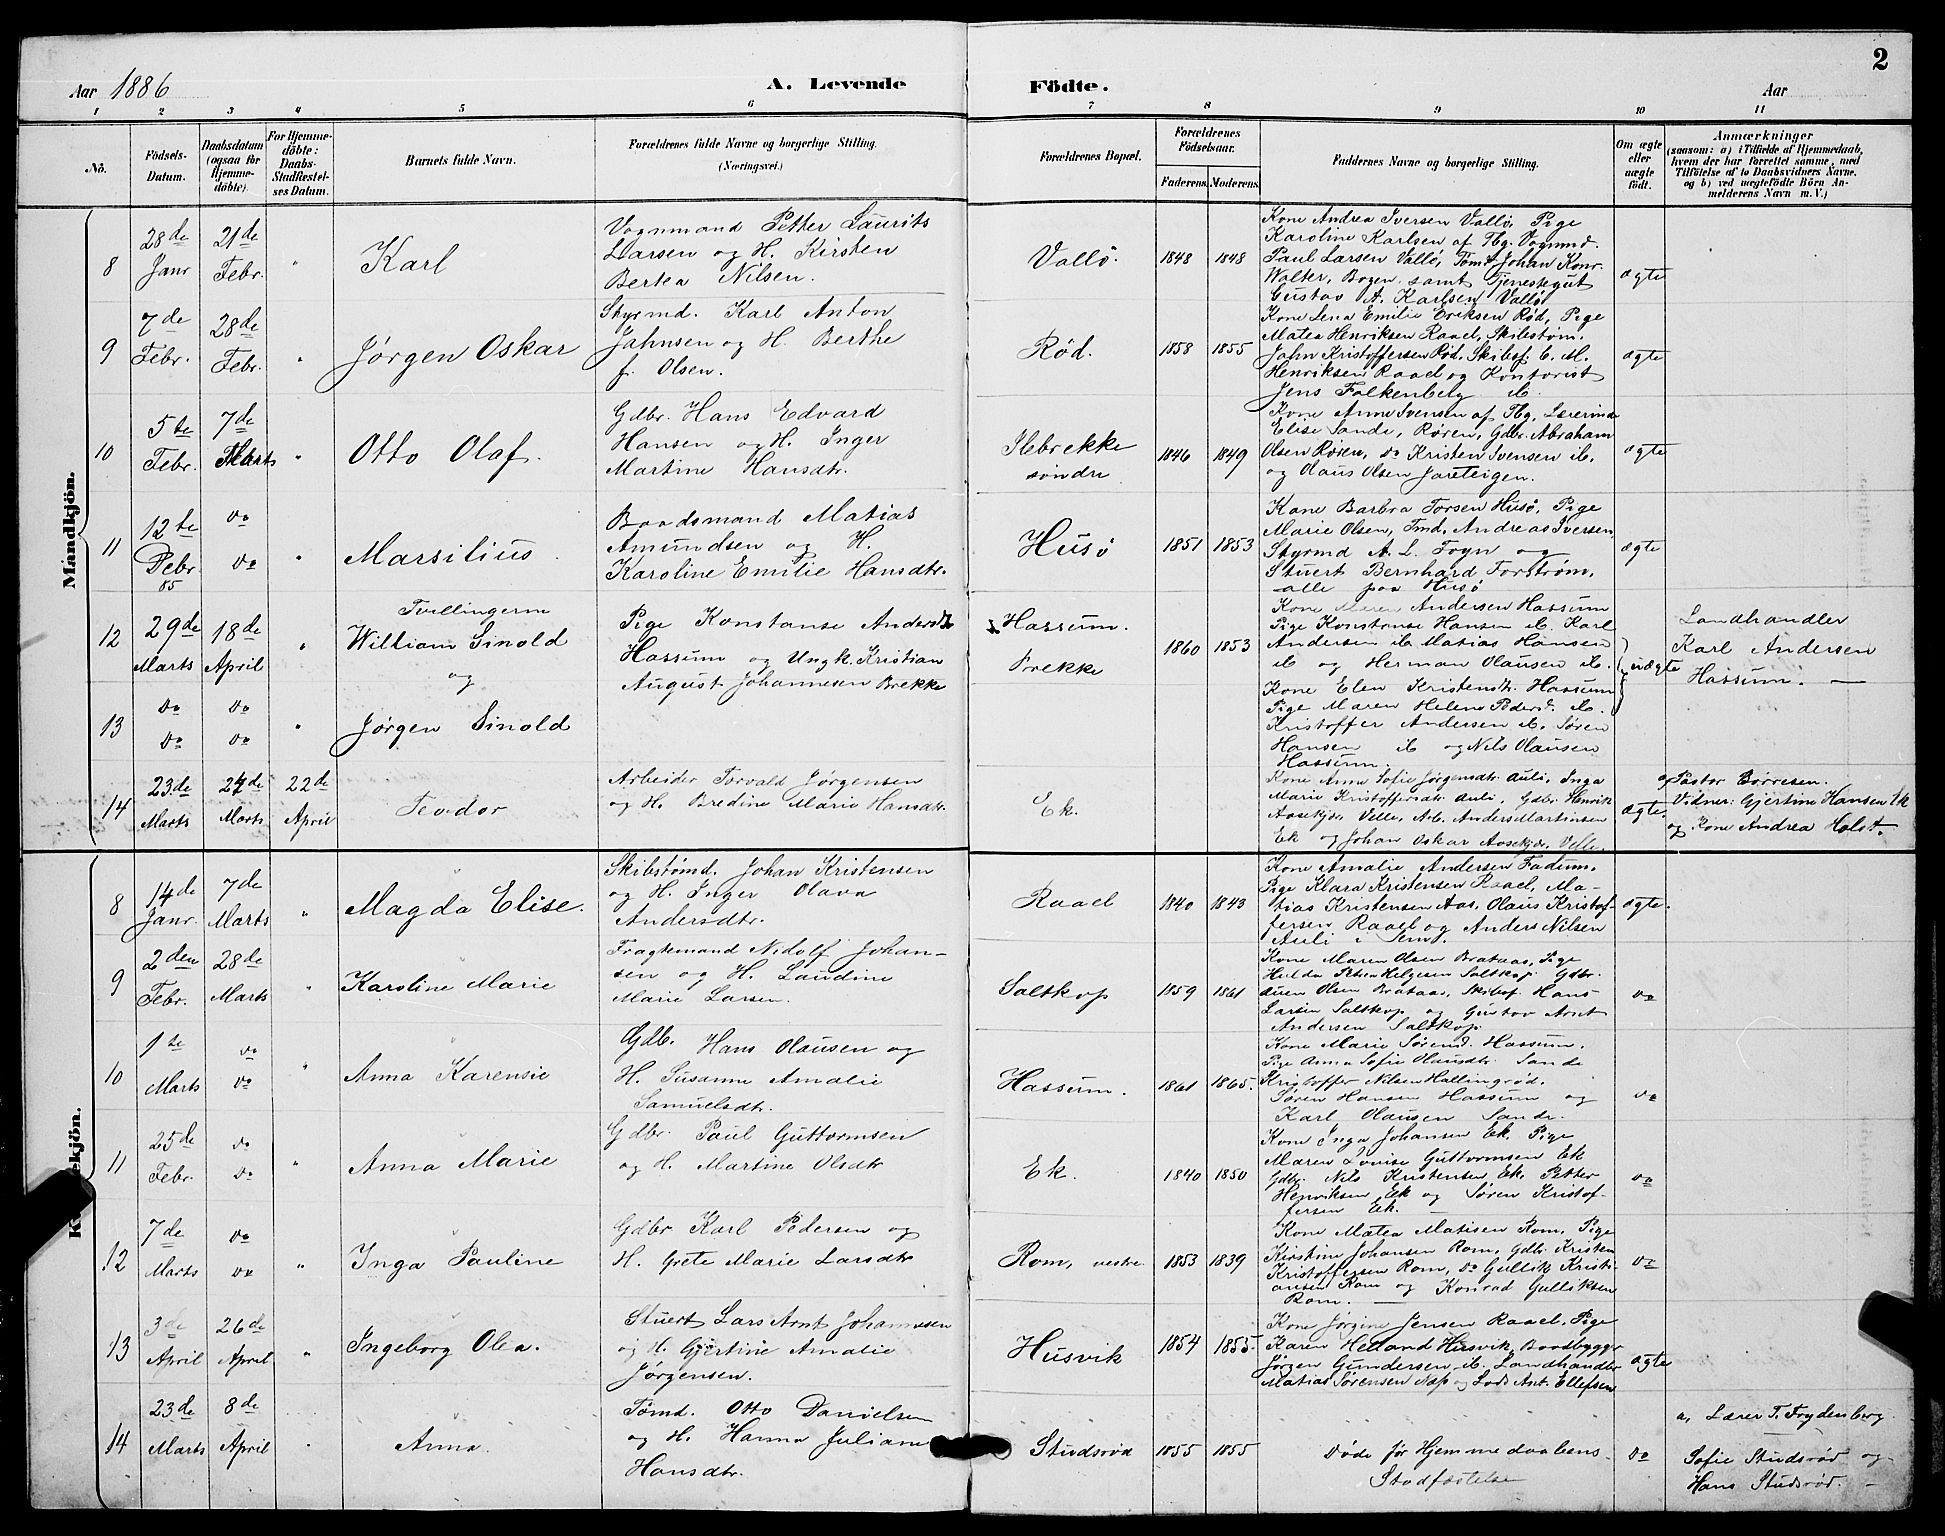 2
Aar 1886
A. Levende Födte.
Aar
1 2 3 4 5 6 7 8 9 10 11
No.
Födsels-Datum.
Daabsdatum (ogsaa for Hjemme-döbte).
For Hjemme-döbte: Daabs-Stadfæstel-ses Datum.
Barnets fulde Navn.
Forældrenes fulde Navne og borgerlige Stilling.
(Næringsvei.)
Forældrenes Bopæl.
Forældrenes Födselsaar.
Faderens. Moderens.
Faddernes Navne og borgerlige Stilling.
Om ægte eller uægte födt.
Anmærkninger
(saasom: a) i Tilfælde af Hjemmedaab,
hvem der har forrettet samme, med
Tilföielse af to Daabsvidners Navne.
og b) ved uægtefödte Börn An-
melderens Navn m. V.)
Mandkjön.
8
28de Janr
21de Febr.
"
Karl
Vognmand Petter Laurits
Larsen og H. Kirsten
Bertea Nilsen.
Vallö.
1848 1848
Kone Andrea Iversen Vallö, Pige
Karoline Karlsen af Tbg. Vognmd.
Paul Larsen Vallö, Tømd Johan Konr.
Walter, Bogen samt Tjenestegut
Gustav A. Karlsen Vallö
ægte
9
7de Febr.
28de Febr.
"
Jørgen Oskar
Styrmd. Karl Anton
Jahnsen og H. Berthe
f. Olsen.
Rød.
1858 1855
Kone Lena Emilie Eriksen Rød, Pige
Matea Henriksen Raael, Skibstøm.
Jahn Kristoffersen Rød, Skibsf. C. M.
Henriksen Raael og Kontorist
Jens Falkenberg ib.
ægte
10
5te Febr.
7de Marts
"
Otto Olaf.
Gdbr. Hans Edvard
Hansen og H. Inger
Martine Hansdtr.
Ilebrekke
søndre
1846 1849
Kone Anne Svensen af Tbg. Lærerinde
Elise Sande, Røren, Gdbr. Abraham
Olsen Røren, do Kristen Svensen ib.
og Olaus Olsen Jareteigen.
ægte
11
12te Febr. 85
do do
"
Marsilius.
Baadsmand Matias
Amundsen og H.
Karoline Emilie Hansdtr.
Husö
1851 1853
Kone Barbra Torsen Husö, Pige
Marie Olsen, Tmd. Andreas Iversen
Styrmd A. L. Foyn og
Stuert Bernhard Forstrøm.
alle paa Husö
ægte
12
29de Marts
18de April
"
Tvillingerne
William Sinold
og
Pige Konstanse Andersdtr
Hassum og Ungk. Kristian
August Johannesen Brekke
Hassum.
Brekke
1860 1853
Kone Maren Andersen Hassum
Pige Konstanse Hansen ib. Karl
Andersen ib. Matias Hansen
ib og Herman Olausen ib.
uægte
Landhandler
Karl Andersen
Hassum. —
13
do do
do do
"
Jørgen Sinold
Kone Elen Kristensdtr. Hassum
Pige Maren Helene Pedersd. ib.
Kristoffer Andersen ib. Søren
Hansen ib og Nils Olausen
Hassum.
14
23de Marts
27de Marts
22de April
Teodor
Arbeider Torvald Jørgensen
og H. Bredine Marie Hansdtr.
Ek.
Kone Anne Sofie Jørgensdtr. Auli, Inga
Marie Kristoffersdtr. Auli, Gdbr. Henrik
Aasekjær, Velle, Arb. Anders Martinsen
Ek og Johan Oskar Aasekjær, Velle.
ægte.
a, Pastor Børresen.
Vidner: Gjertine Hansen Ek
og Kone Andrea Holst.
Kvindekjön.
8
14de Janr.
7de Marts
"
Magda Elise.
Skibstømd. Johan Kristensen
og H. Inger Olava
Andersdtr.
Raael
1840 1843
Kone Amalie Andersen Fadum.
Pige Klara Kristensen Raael, Ma-
tias Kristensen Aas, Olaus Kristof-
fersen Raael og Anders Nilsen
Auli i Sem.
ægte.
9
2den Febr.
28de Marts
"
Karoline Marie
Fragtemand Nidolf Johan-
sen og H. Laudine
Marie Larsen.
Saltkop
1859 1861
Kone Maren Olsen Brataas, Pige
Hulda Petra Helgesen Saltkop Gdbr.
Auen Olsen Brataas, Skibsf. Hans
Larsen Saltkop og Gustav Arnt
Andersen Saltkop.
do
10
1ste Marts
do do
"
Anna Karensie
Gdb. Hans Olausen og
H. Susanne Amalie
Samuelsdtr.
Hassum.
1861 1865.
Kone Marie Sørensd. Hassum.
Pige Anna Sofie Olausdtr. Sande
Kristoffer Nilsen Hallingrød.
Søren Hansen Hassum og
Karl Olausen Sande.
do
11
25de Febr.
do do
"
Anna Marie
Gdbr. Paul Guttormsen
og H. Martine Olsdtr
Ek.
1840 1850
Kone Inga Johansen Ek. Pige
Maren Lovise Guttormsen Ek
Gdbr. Nils Kristensen Ek. Petter
Henriksen Ek og Søren Kristof-
fersen Ek.
do
12
7de Marts
do do
"
Inga Pauline
Gdbr Karl Pedersen og
H. Grete Marie Larsdtr
Rom, vestre
1853 1839
Kone Matea Matisen Rom, Pige
Kirstine Johansen Rom, Gdb. Kristen
Kristoffersen Rom, do Gullik Kristi-
ansen Rom og Konrad Gulliksen
Rom. —
do
13
3de April
26de April
"
Ingeborg Olea.
Stuert Lars Arnt Johannesen
og H. Gjertine Amalie
Jørgensen.
Husvik
1854 1855.
Kone Jørgine Jensen Raael, Pige
Karen Helland Husvik, Baadbygger
Jørgen Gundersen ib. Landhandler
Matias Sørensen Næs og Lods Ant. Ellefsen
ægte
14
23de Marts
8de April
"
Anna.
Tømd. Otto Danielsen
og H. Hanna Juliane
Hansdtr.
Studsrød
1855 1855
Døde før Hjemmedaabens
Stadfæstelse
do
a, Lærer T. Frydenberg
Sofie Studsrød og
Hans Studsrød. —